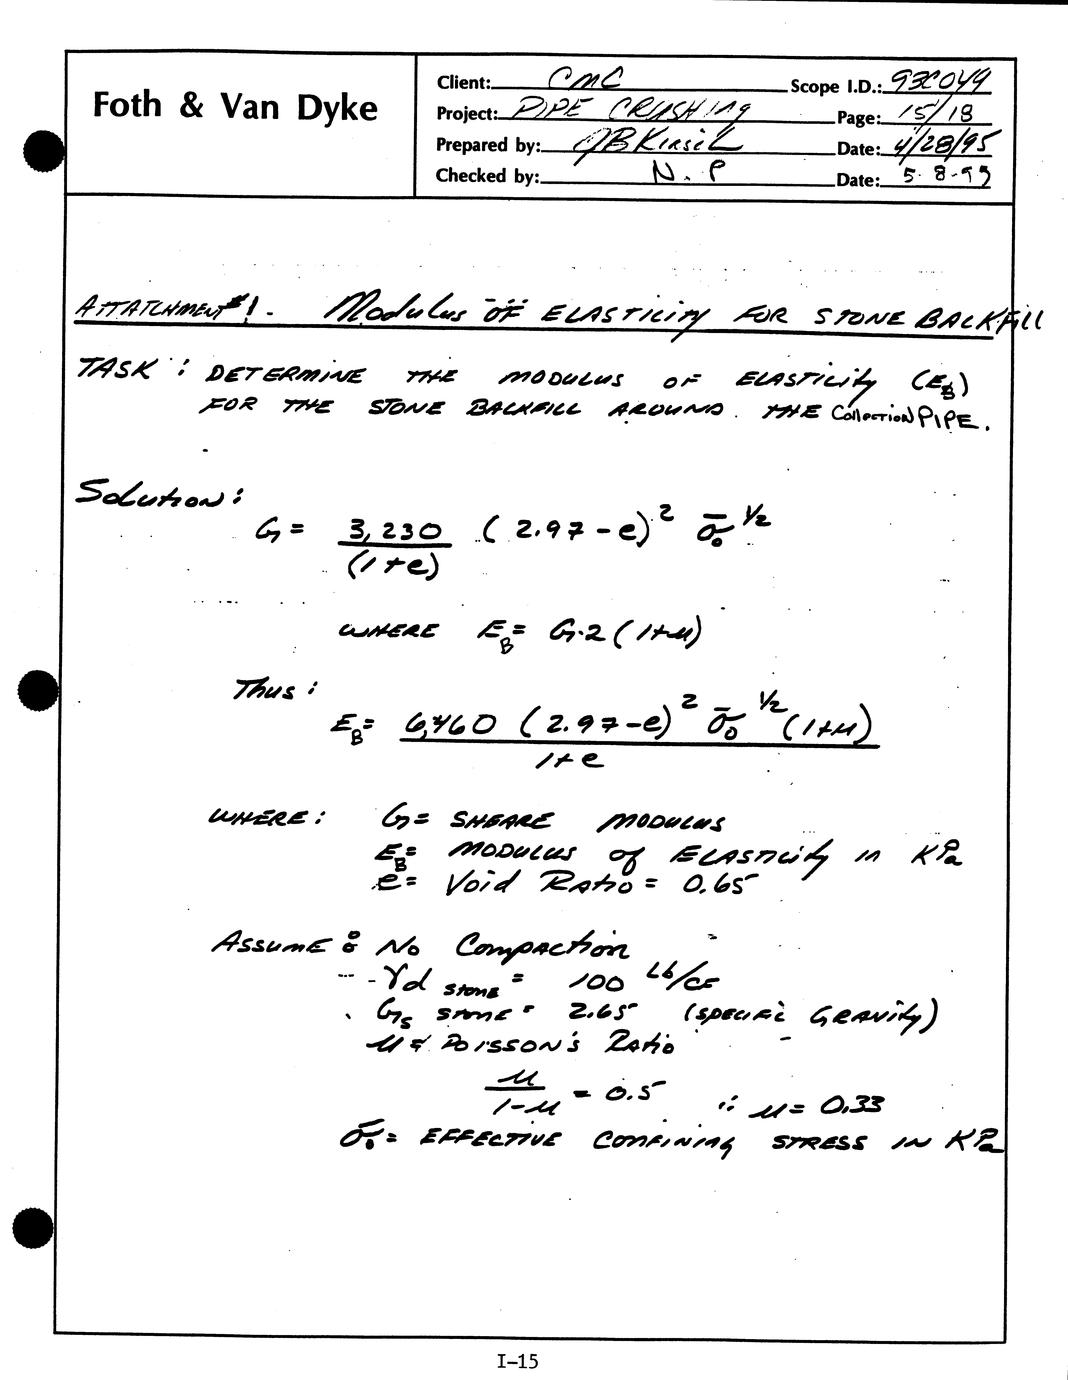 Foth & Van Dyke
Client: CMC Scope I.D.: 93C049
Project: PIPE CRUSHING Page: 15/18
Prepared by: Date: 4/28/95
Checked by: N.P Date: 5-8-95
ATTATCHMENT #1. Modulus OF ELASTICITY FOR STONE BACKFILL
TASK: DETERMINE THE MODULUS OF ELASTICITY (E_B)
FOR THE STONE BACKFILL AROUND THE Collection PIPE.
Solution:
G = 3,230 / (1+e) (2.97-e)² σ̄₀^1/2
WHERE E_B = G·2(1+μ)
Thus:
E_B = 6,460 (2.97-e)² σ̄₀^1/2 (1+μ) / 1+e
WHERE: G = SHEARE MODULUS
E_B = MODULUS of ELASTICITY in KPa
e = Void Ratio = 0.65
ASSUME: No Compaction
- γd STONE = 100 Lb/CF
Gs STONE = 2.65 (SPECIFIC GRAVITY)
μ = POISSON'S RATIO
μ / 1-μ = 0.5 ∴ μ = 0.33
σ̄₀ = EFFECTIVE CONFINING STRESS IN KPa
I-15